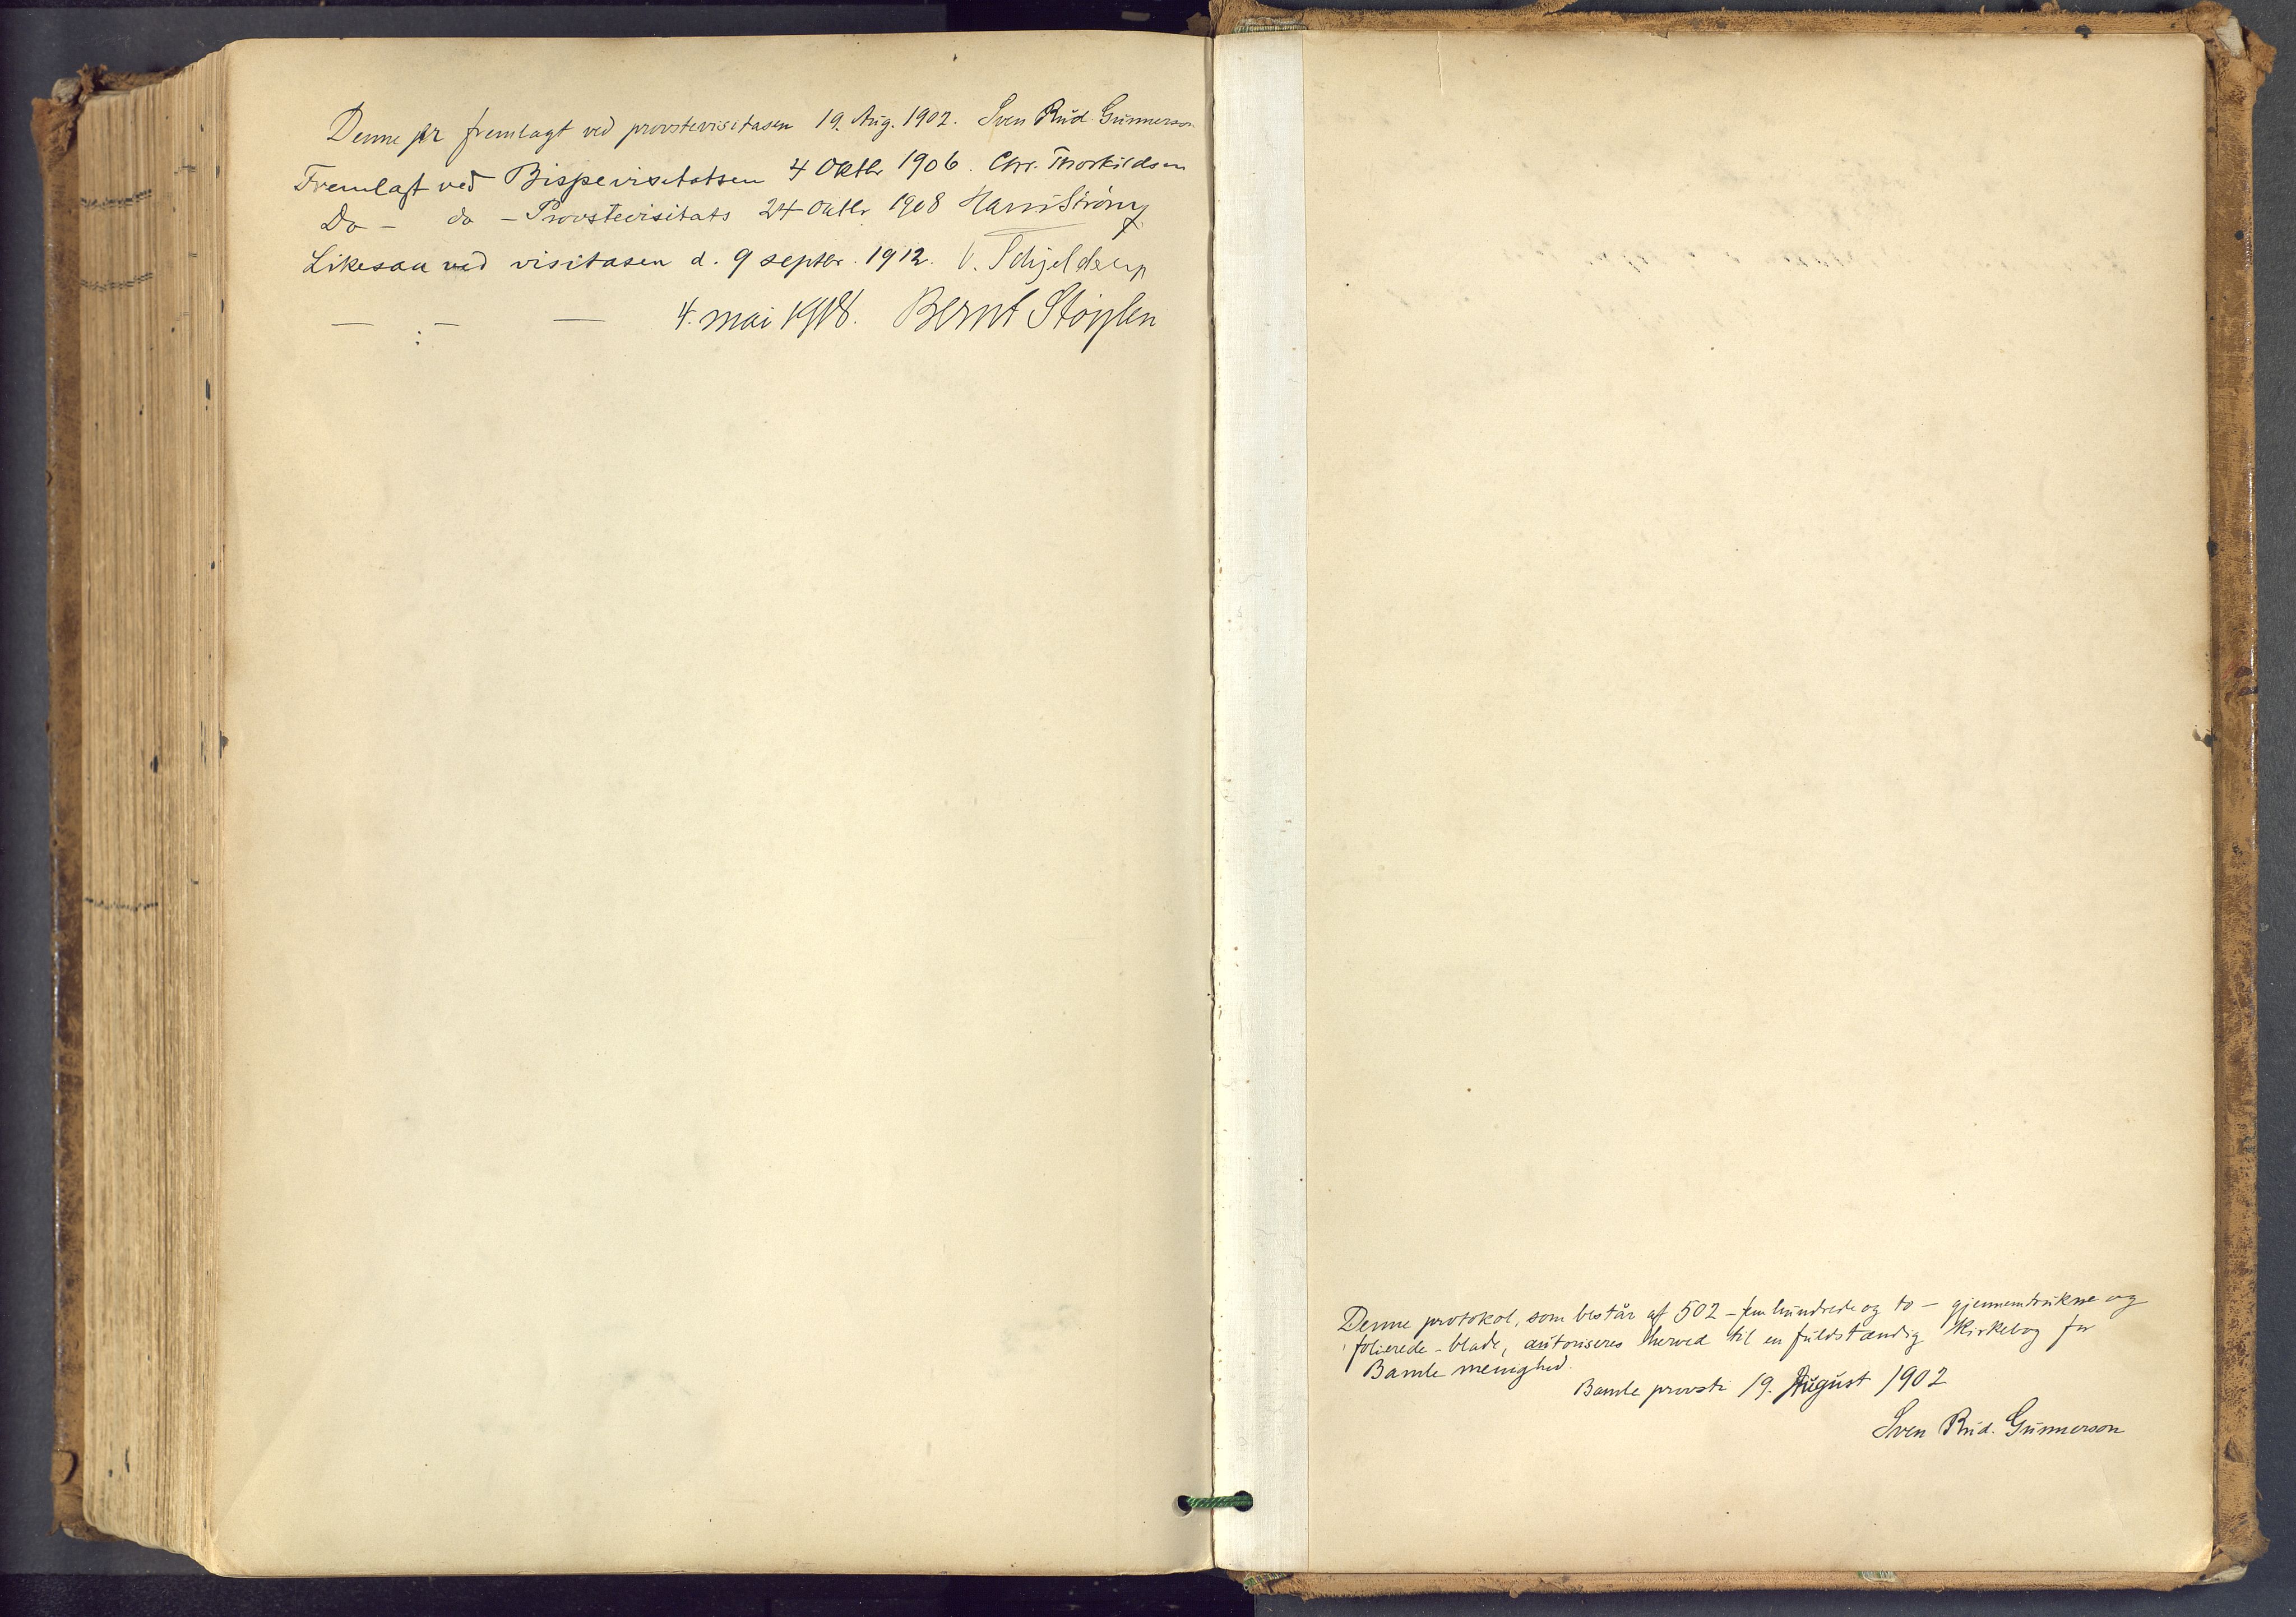 Denne pr fremlagt ved provstevisitasen 19. Aug. 1902. Sven Rud. Gunnerson
Fremlagt ved Bispevisitatsen 4 Oktbr 1906. Chr. Thorkildsen
Do - do - Provstevisitats 24 Oktbr 1908 Hans Strøm
Likesaa ved visitasen d. 9 septbr. 1912. V. Schjelderup
— : — — 4. mai 1918. Bernt Støylen
Denne protokol, som består af 502 - fem hundrede og to - gjennemtrukne og
folierede - blade, autoriseres herved til en fuldstændig kirkebog for
Bamle menighed.
Bamle provsti 19. August 1902
Sven Rud. Gunnerson